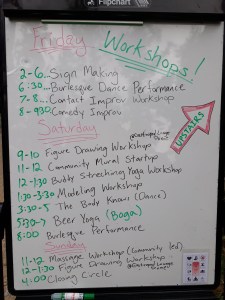 Flipchart
Friday
Workshops!
2-6...Sign Making
6:30...Burlesque Dance Performance
7-8...Contact Improv Workshop
8-930 Comedy Improv
UPSTAIRS
Saturday
9-10 Figure Drawing Workshop
11-12 Community Mural Startup
12-1:30 Buddy Streching Yoga Workshop
1:30-3:30 Modeling Workshop
3:30-5 The Body Knows (Dance)
5:30-7 Beer Yoga (Boga)
8:00 Burlesque Performance
Sunday
11-12 Massage Workshop (Community led)
12-1:30 Figure Drawing Workshop
4:00 Closing Circle